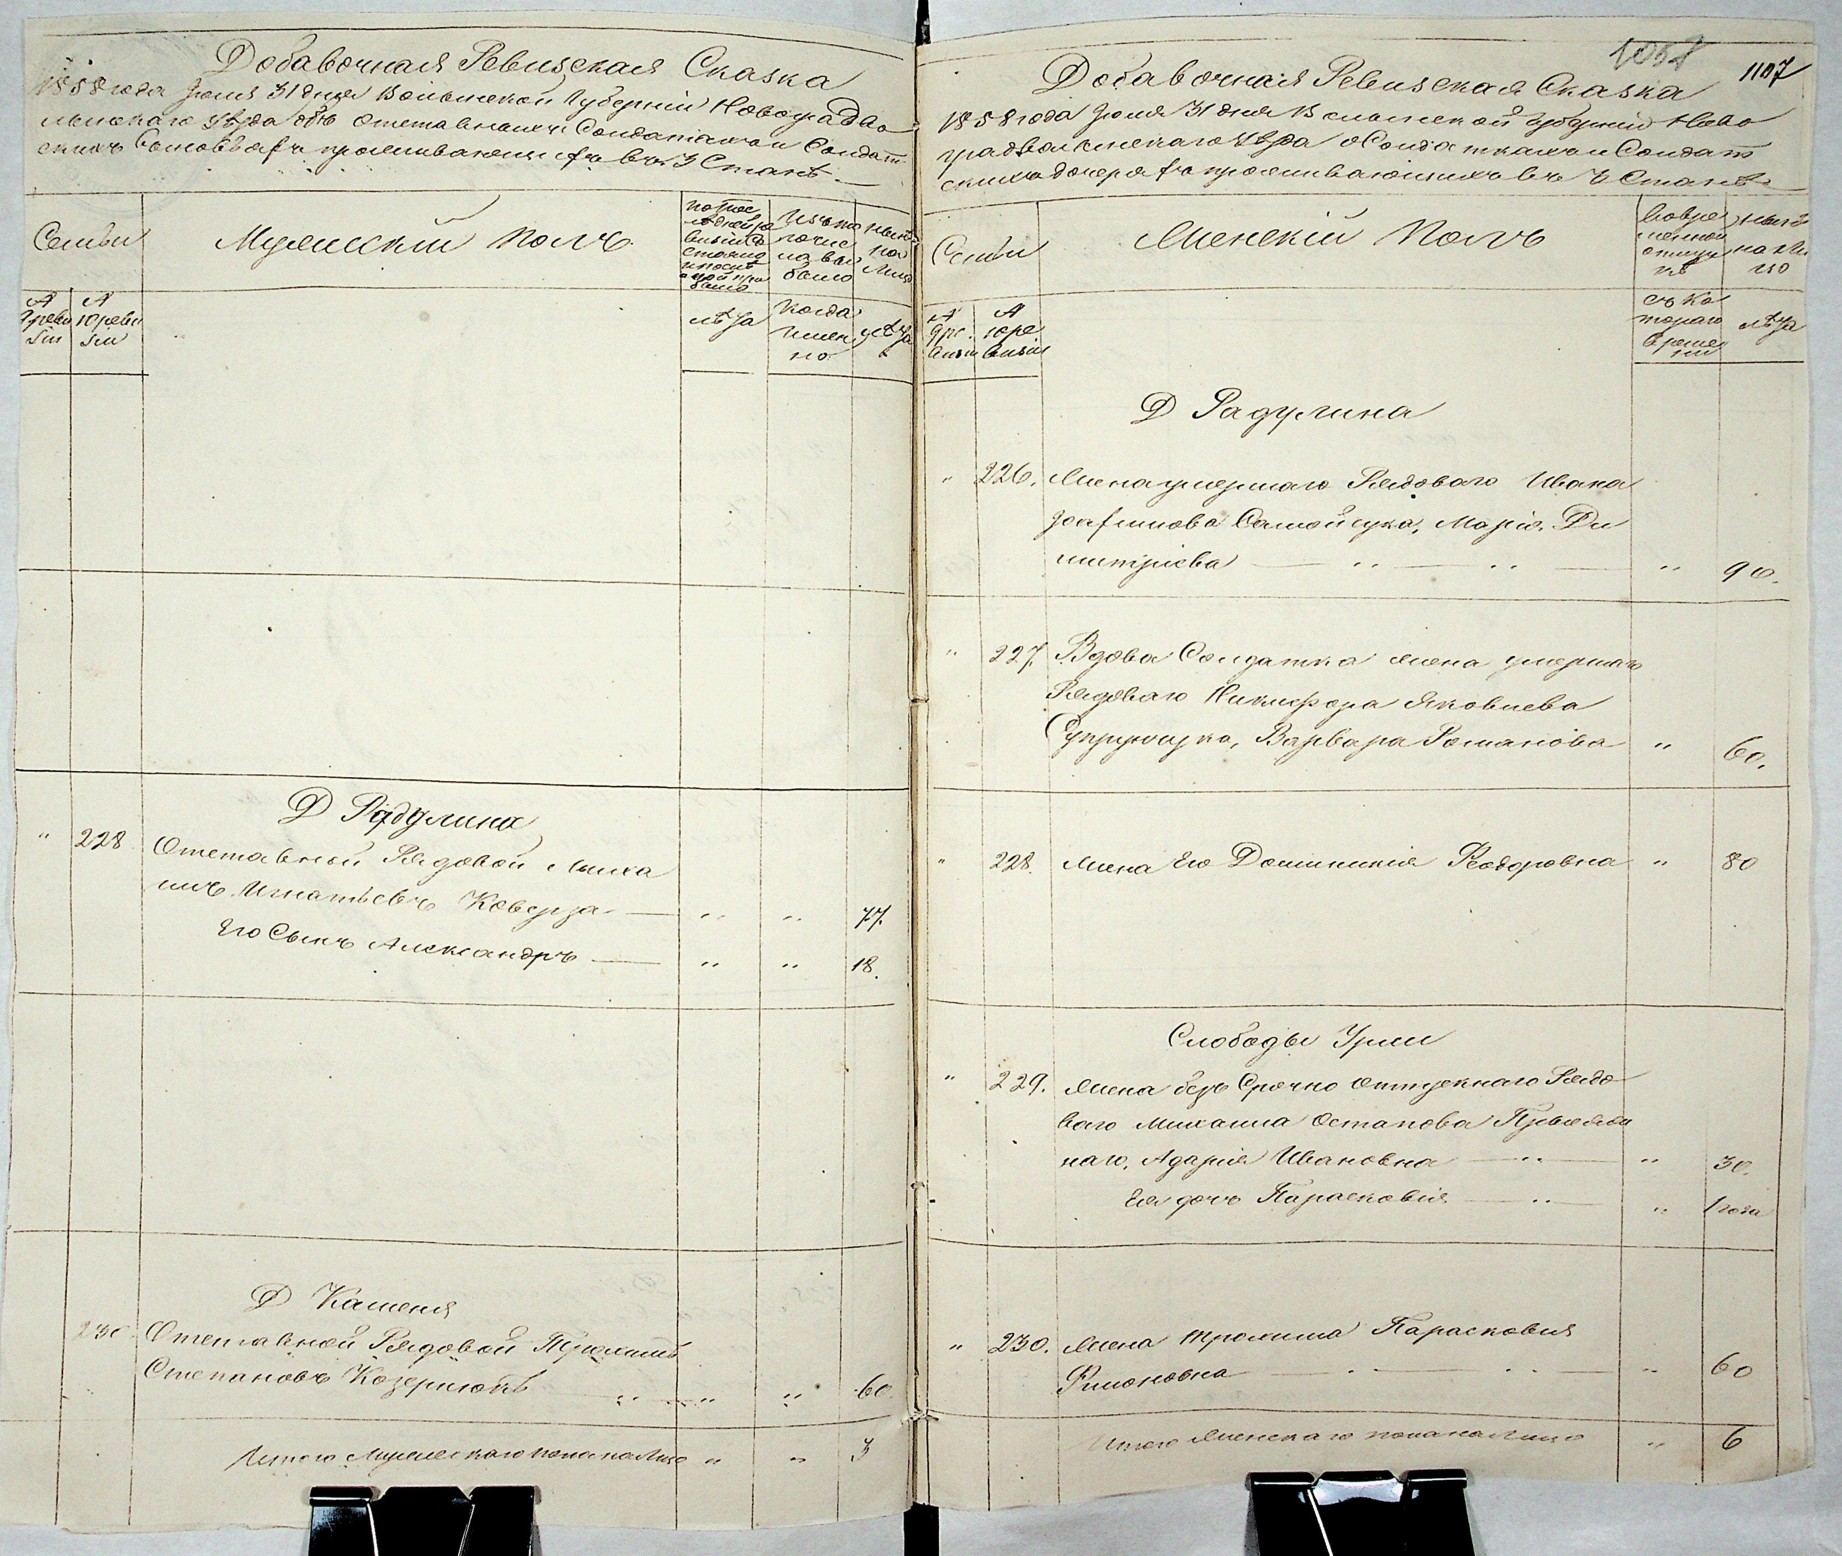 Добавочная Ревизская Сказка
1858 года Июля 31 дня Волынской Губерніи Новоградво
лынскаго уѣзда объ отставныхъ Солдатахъ и Солдат
скихъ Сыновьяхъ проживающихъ въ 3 Станѣ
Семьи
Мужескій полъ
по пос
лѣдней ре
визіи со
стояло
и послѣ
оной при
было
Изъ то
го чис
ла вы
было
нынѣ
на
лицо
№
9 реви
зіи
№
10 реви
зіи
лѣта
когда
имен
но
лѣта
Д Радулина
" 228 Отставной Рядовой Миха
илъ Игнатьевъ Коверза — " " 77.
Его Сынъ Александръ — " " 18.
Д Каменя
230. Отставной Рядовой Трофимъ
Степановъ Козернюкъ " " 60.
Итого Мужескаго пола на лицо " " 3
1058 1107
Добавочная Ревизская Сказка
1858 года Июля 31 дня Волынской Губерніи Ново
градволынскаго уѣзда о Солдаткахъ и Солдат
скихъ дочеряхъ проживающихъ въ Станѣ
Семьи
Женскій Полъ
Во вре
менной
отлуч
кѣ
нынѣ
на ли
цо
№
9 ре
визіи
№
10 ре
визіи
съ ко
тораго
време
ни
лѣта
Д Радулина
" 226. Жена умершаго Рядоваго Ивана
Самойлука, Марія Ди
митріева — " — " — " 90.
" 227. Вдова Солдатка жена умершаго
Рядоваго Никифора Яковлева
Супрунчука, Варвара Романова " 60.
" 228. Жена Его Домникія Феодоровна " 80
Слободы Уріи
" 229. Жена безъ Срочно отпускнаго Рядо
ваго Михаила Остапова
наго, Адарія Ивановна — " — " 30.
Ея дочь Парасковія — " — " 1 года
" 230. Жена Трофима Парасковія
Филоновна — " — " — " 60
Итого Женскаго пола на лицо " 6